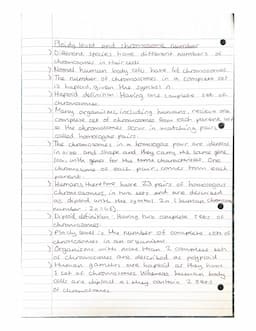 Ploidy level and chromosome number
> Different species have different numbers of
chromosomes in their cells
> Normal human body cells have 46 chromosomes
> The number of chromosomes in a complete set
is haploid, given the symbol n.
> Haploid definition: Having one complete set of
chromosomes
> Many organisms, including humans, receive one
complete set of chromosomes from each parent
so the chromosomes occur in matching pairs
called homologous pairs
> The chromosomes in a homologous pair are
in size and shape and they carry the same gene
loci, with genes for the same characteristics. One
chromosome of each pair comes from each
parent.
> Humans therefore have 23 pairs of homologous
chromosomes, in two sets and are described
as diploid with the symbol 2n (human chromosome
number: 2n=46).
> Diploid definition: Having two complete sets of
chromosomes
> Ploidy level is the number of complete sets of
chromosomes in an organism
> Organisms with more than 2 complete sets
of chromosomes are described as polyploid
> Human gametes are haploid as they have
1 set of chromosomes whereas human body
cells are diploid as they contain 2 sets
of chromosomes